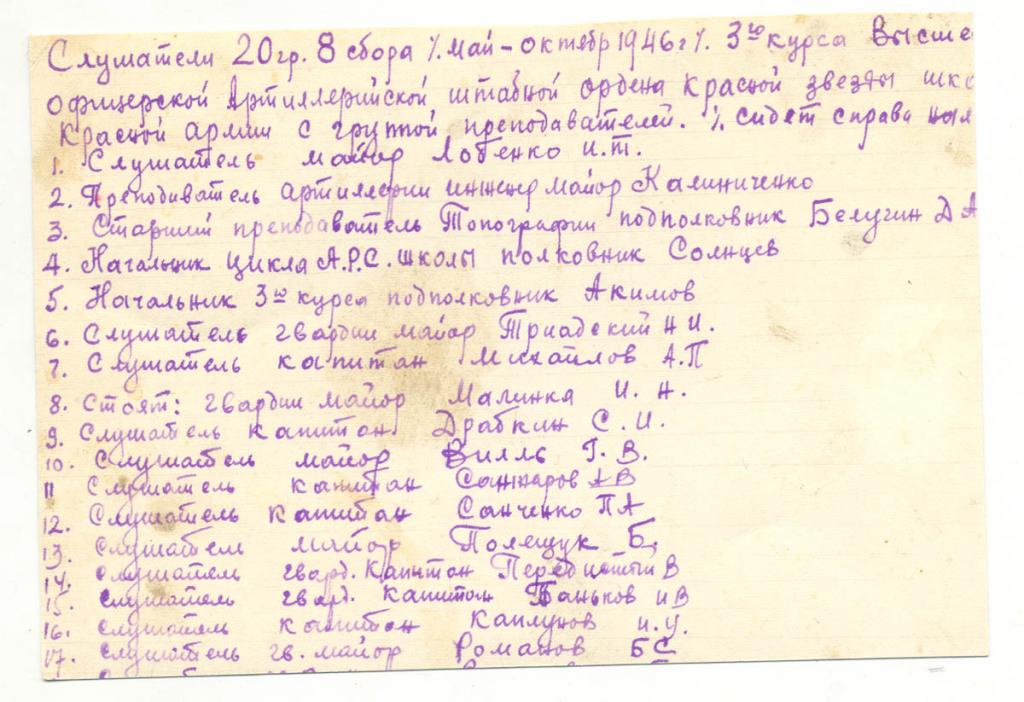 Слушатели 20 гр. 8 сбора /. май - октябр 1946 г /. 3го курса Высше
офицерской Артиллерийской штабной ордена Красной звезды шко
Красной армии с группой преподавателей. /. сидят справа
1. Слушатель майор Лобенко И.Т.
2. Преподиватель артиллерии инженр майор Калиниченко
3. Старший преподаватель Топографии подполковник Белугин Д А
4. Начальник цикла А.Р.С. школы полковник Солнцев
5. Начальник 3го курса подполковник Акимов
6. Слушатель гвардии майор Триадский Н И.
7. Слушатель капитан Михайлов А.П
8. Стоят: гвардии майор Малинка И. Н.
9. Слушатель капитан Драбкин С. И.
10. Слушатель майор Вилль Г. В.
11 Слушатель капитан А В
12. Слушатель капитан Санченко П А
13. Слушатель майор Полещук Б.
14. Слушатель гвард. капитан В
15. Слушатель гвард. капитан Паньков И В
16. Слушатель капитан Каплунов И. У.
17. Слушатель гв. майор Романов Б С